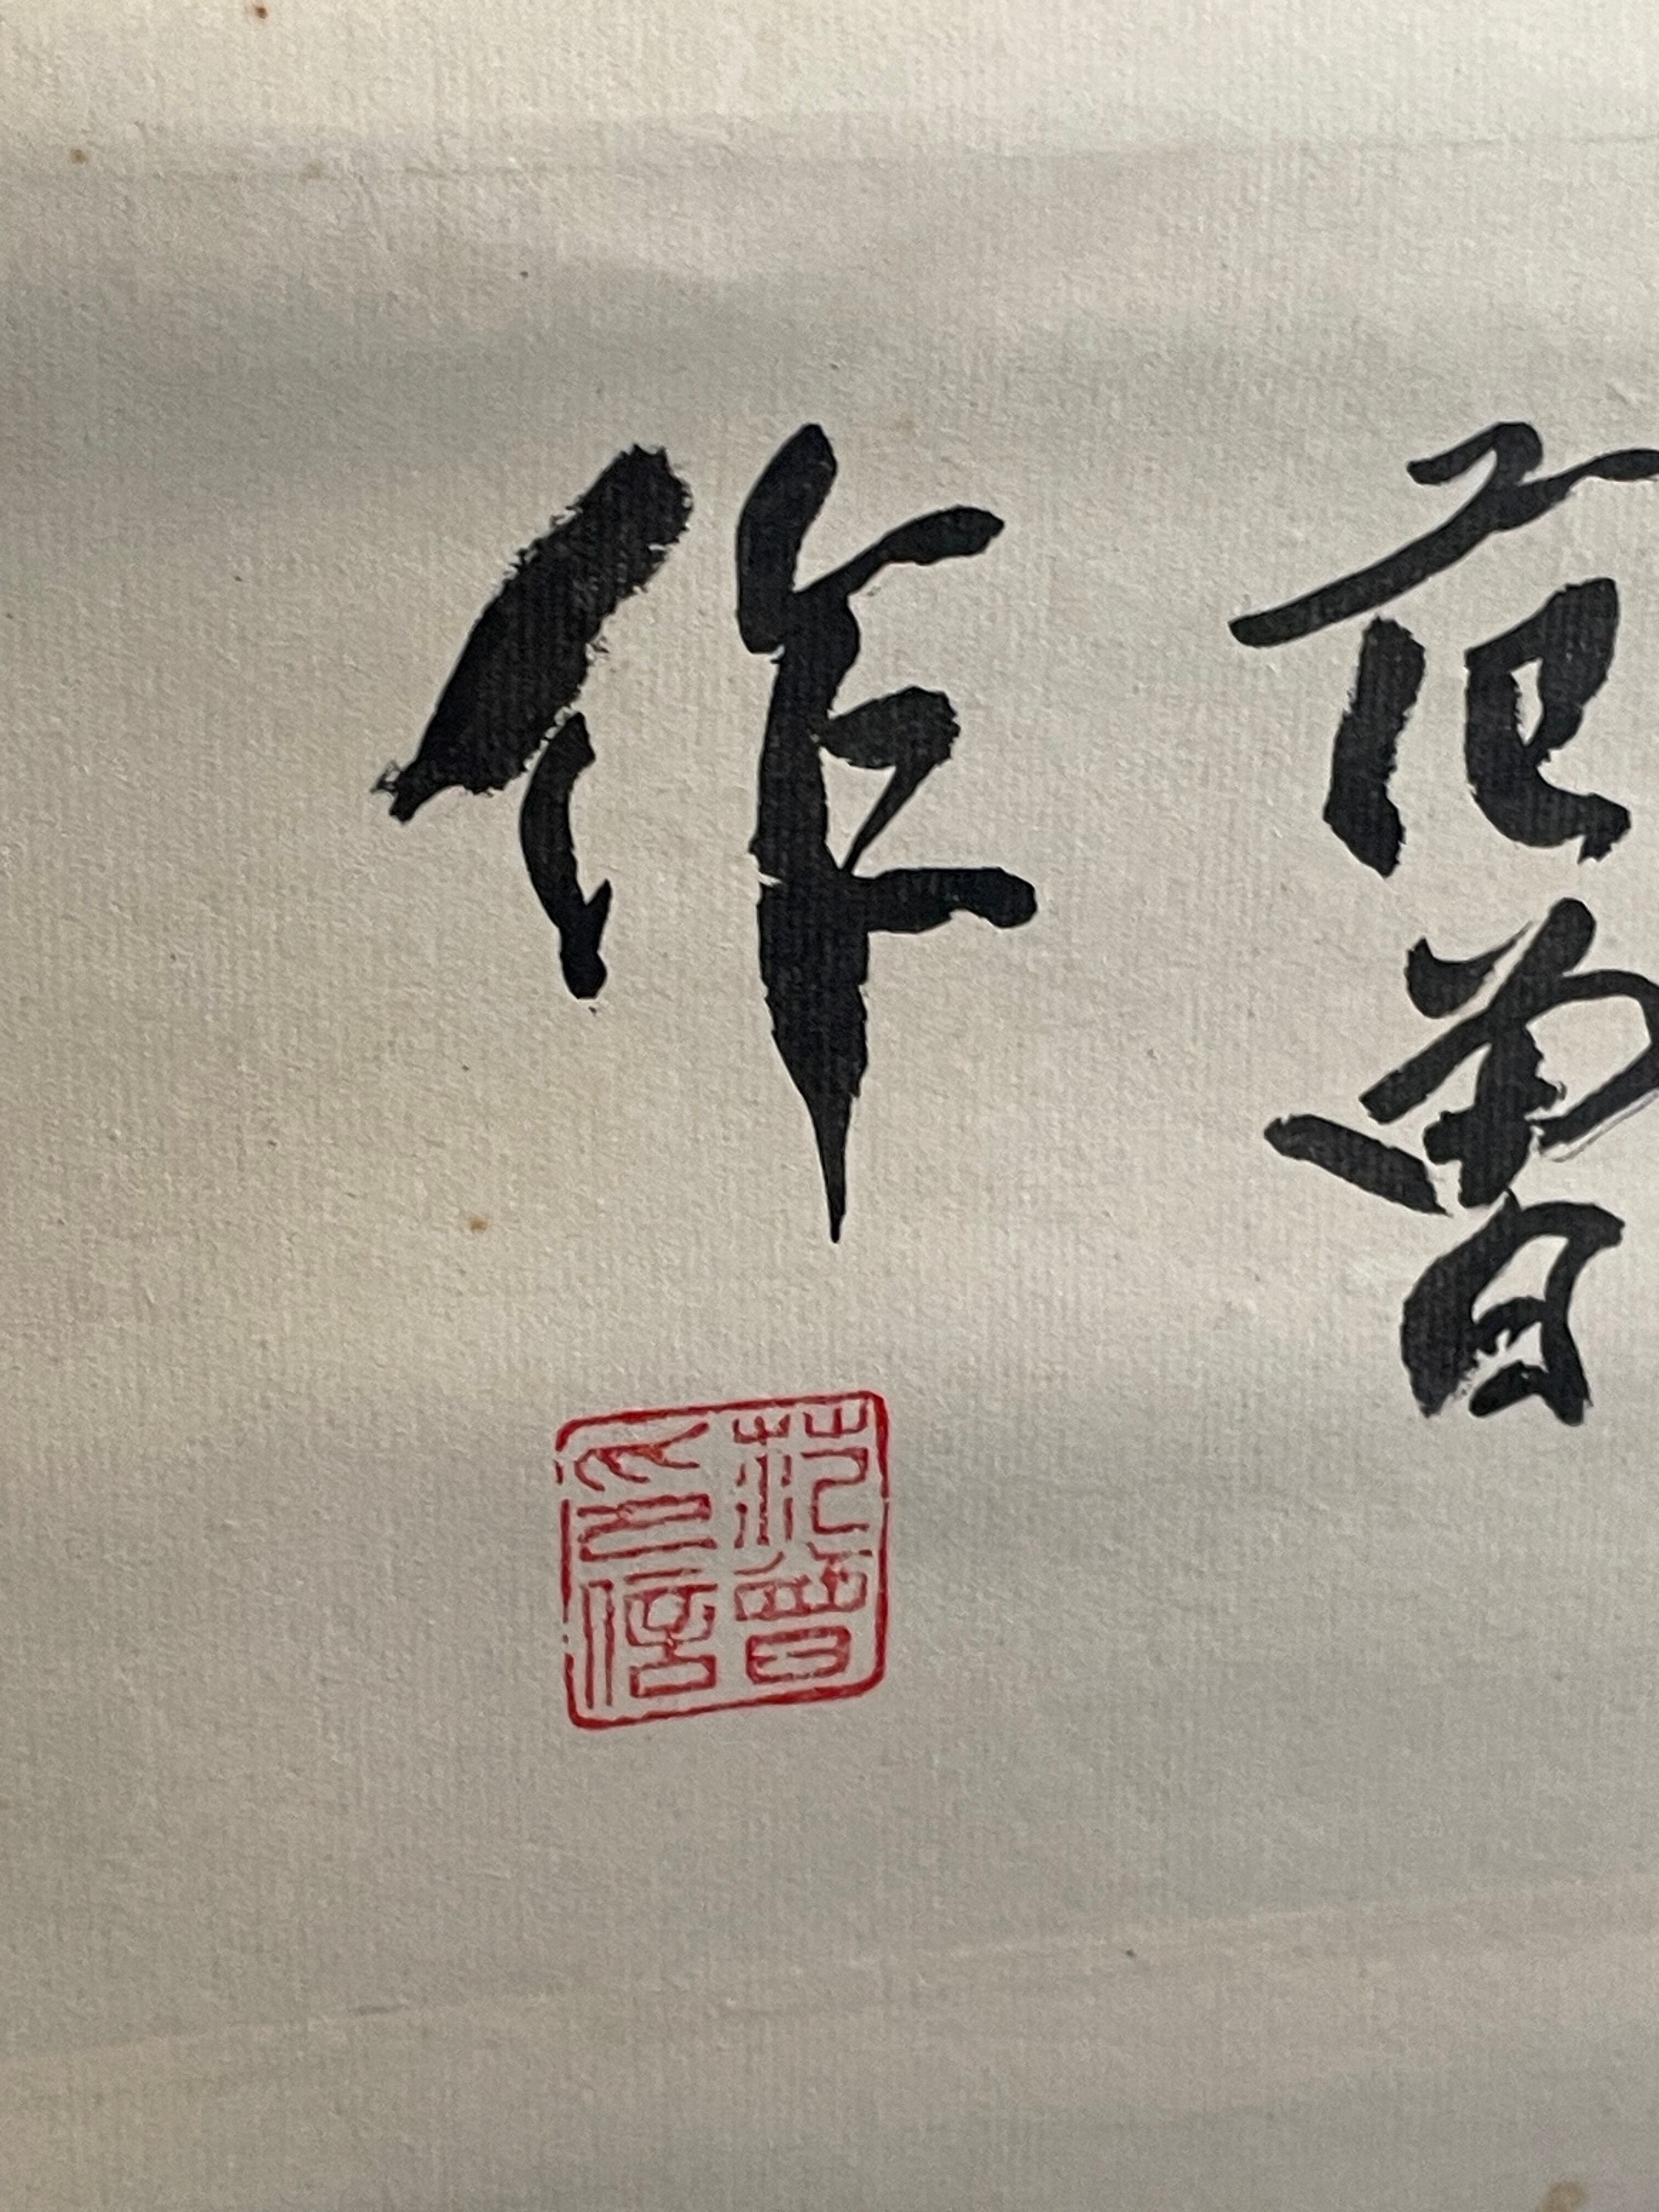 范曾
作
范曾
印信